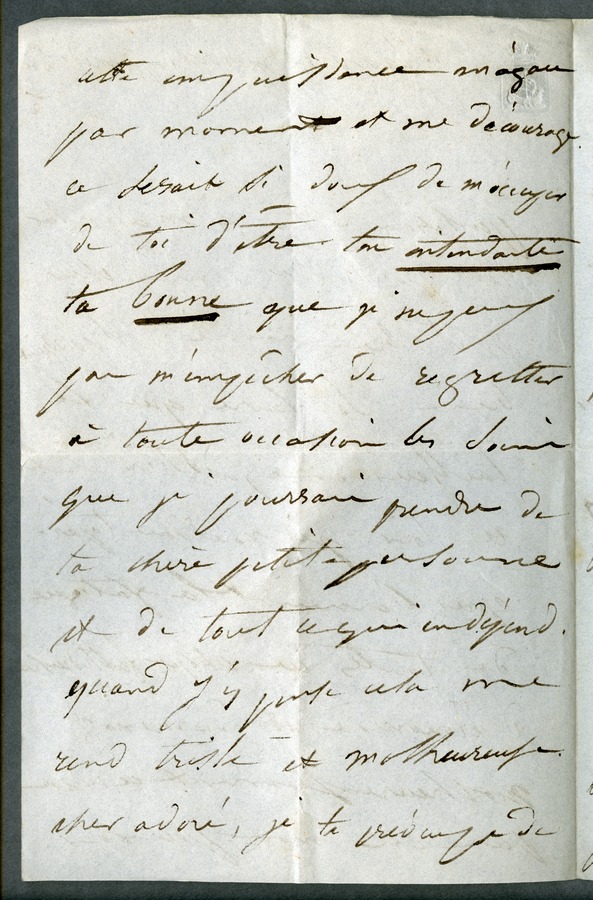 cette impuissance m'agace
par moment et me décourage.
ce serait si doux de m'occuper
de toi d'être ton intendante
ta bonne que je ne peux
pas m'empêcher de regretter
à toute occasion les soins
que je pourrais prendre de
ta chère petite personne
et de tout ce qui en dépend.
quand j'y pense cela me
rend triste et malheureuse.
cher adoré, je te de